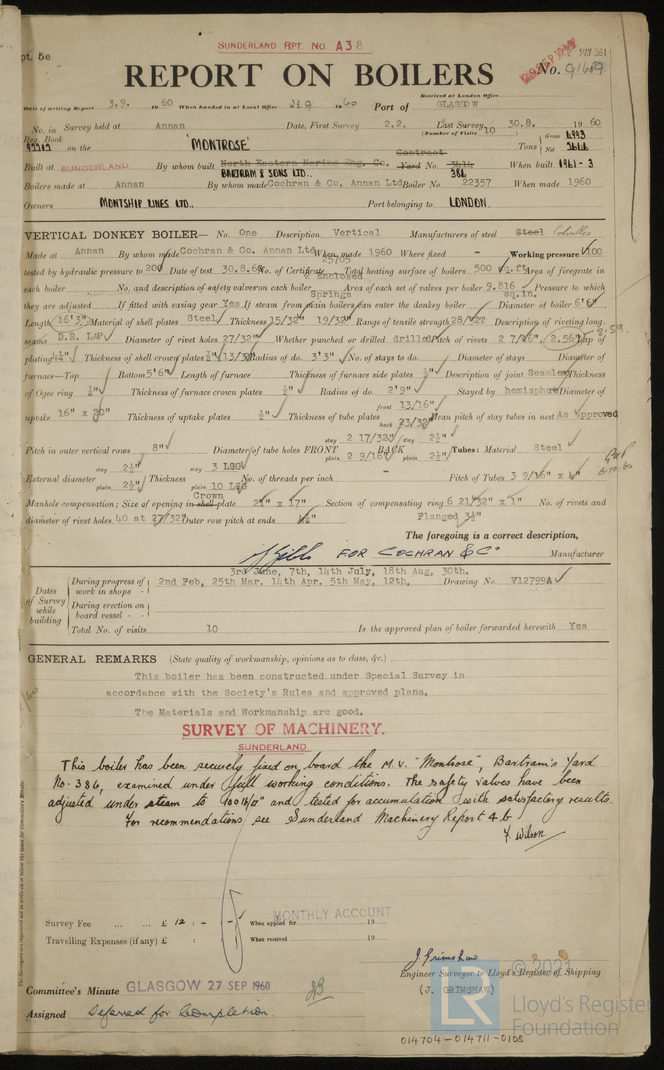 SUNDERLAND RPT. NO. A38
pt. 5e
REPORT ON BOILERS
No.
Received at London Office
Date of writing Report 3.9. 1960 When handed in at Local Office 1960 Port of GLASGOW
No. in Survey held at Annan Date, First Survey 2.2. Last Survey 30.8. 1960
Reg. Book (Number of Visits 10
on the 'MONTROSE' Tons Gross Net
Contract
Built at SUNDERLAND By whom built North Eastern Marine Eng. Co. Yard No. 3414 When built 1961-3
BARTRAM & SONS LTD., 386
Boilers made at Annan By whom made Cochran & Co. Annan Ltd Boiler No. 22357 When made 1960
Owners MONTSHIP LINES LTD., Port belonging to LONDON.
VERTICAL DONKEY BOILER— No. One Description Vertical Manufacturers of steel Steel Colvilles
Made at Annan By whom made Cochran & Co. Annan Ltd When made 1960 Where fixed - Working pressure 100
tested by hydraulic pressure to 200 Date of test 30.8.60 No. of Certificate 25705 Total heating surface of boilers 500 sq.ft. Area of firegrate in
each boiler No. and description of safety valves on each boiler Enclosed Springs Area of each set of valves per boiler 9.816 sq.in. Pressure to which
they are adjusted If fitted with easing gear Yes If steam from main boilers can enter the donkey boiler Diameter of boiler 6'6"
Length 16'3" Material of shell plates Steel Thickness 15/32" 19/32" Range of tensile strength 28/32T Description of riveting long.
seams D.R. LAP Diameter of rivet holes 27/32" Whether punched or drilled drilled Pitch of rivets 2 7/16" 2.56" Lap of
plating 4¼" Thickness of shell crown plates 13/32" Radius of do. 3'3" No. of stays to do. Diameter of stays Diameter of
furnace—Top Bottom 5'6" Length of furnace Thickness of furnace side plates ½" Description of joint Seamless Thickness
of Ogee ring Thickness of furnace crown plates ½" Radius of do. 2'9" Stayed by hemisphere Diameter of
uptake 16" x 20" Thickness of uptake plates ½" Thickness of tube plates front 13/16" back 23/32" Mean pitch of stay tubes in nest As approved
Pitch in outer vertical rows 8" Diameter of tube holes FRONT stay 2 17/32" plain 2 9/16" BACK stay 2½" plain 2½" Tubes: Material Steel
External diameter stay 2½" plain 2½" Thickness stay 3 LSG plain 10 LSG No. of threads per inch - Pitch of Tubes 3 9/16" x 4"
Manhole compensation; Size of opening in shell plate Crown x 17" Section of compensating ring 6 21/32" x 1" No. of rivets and
diameter of rivet holes 40 at 27/32" Outer row pitch at ends Flanged 3½"
The foregoing is a correct description,
FOR COCHRAN & Co Manufacturer
Dates of Survey while building
During progress of work in shops - - 3rd June, 7th, 14th July, 18th Aug, 30th.
2nd Feb, 25th Mar. 14th Apr. 5th May, 12th, Drawing No. V12799A
During erection on board vessel - -
Total No. of visits 10 Is the approved plan of boiler forwarded herewith Yes
GENERAL REMARKS (State quality of workmanship, opinions as to class, &c.)
This boiler has been constructed under Special Survey in
accordance with the Society's Rules and approved plans.
The Materials and Workmanship are good.
SURVEY OF MACHINERY.
SUNDERLAND
This boiler has been securely fixed on board the M.V. "Montrose", Bartram's Yard
No. 386, examined under full working conditions. The safety valves have been
adjusted under steam to 100 lb/□" and tested for accumulation with satisfactory results.
For recommendations see Sunderland Machinery Report 4b
F. Wilson
Survey Fee ... ... £ 12 : - : - When applied for MONTHLY ACCOUNT 19
Travelling Expenses (if any) £ : : When received 19
J Grimshaw
Engineer Surveyor to Lloyd's Register of Shipping
(J. GRIMSHAW)
Committee's Minute GLASGOW 27 SEP 1960
Assigned Deferred for Completion.
© 2021
LR
Lloyd's Register
Foundation
014704-014711-0108